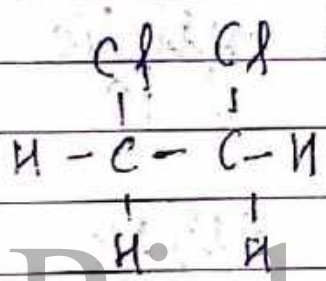 Cl Cl
H - C - C - H
H H